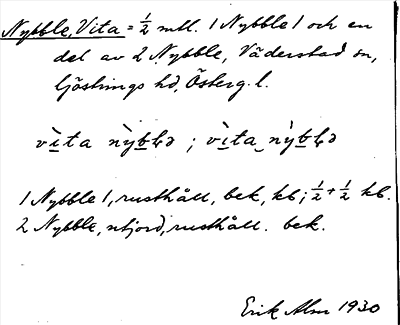 Nybble, Vita = 1/2 mtl. 1 Nybble 1 och en
del av 2 Nybble, Väderstad sn,
Göstrings hd, Österg. l.
vìta ny̆bḷə ; vìta nỳbḷə
1 Nybble 1, rusthåll, bek, kb; 1/2 + 1/2 kb.
2 Nybble, utjord, rusthåll. bek.
Erik Alm 1930